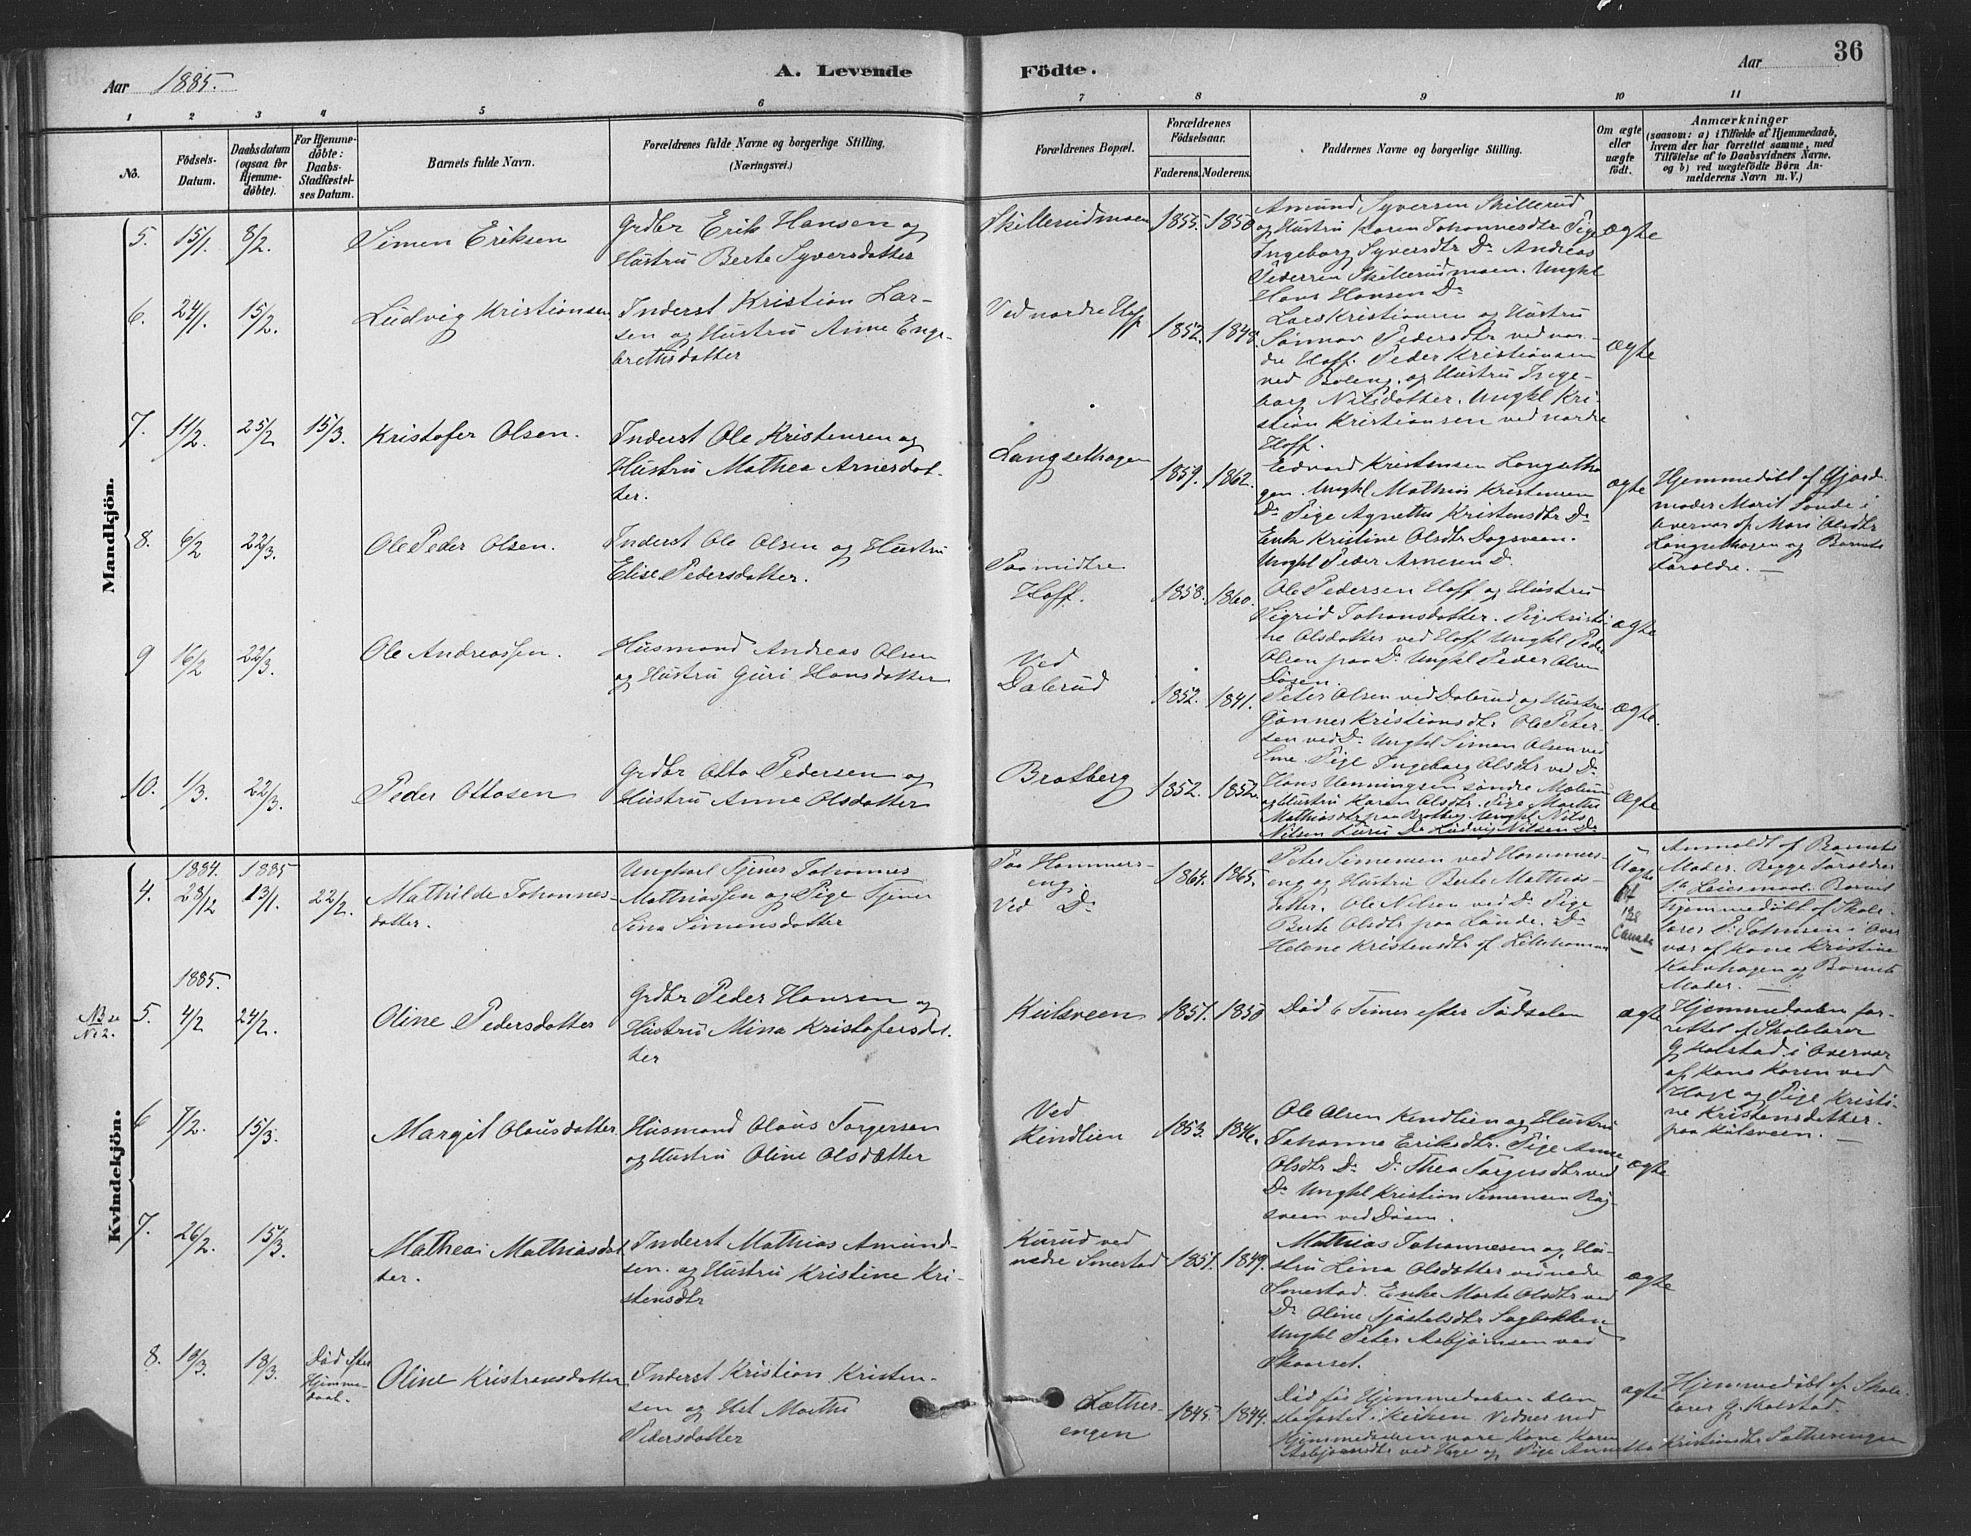 Aar 1885.
A. Levende
Födte.
Aar
36
1
2
3
4
5
6
7
8
9
10
11
No.
Födsels-
Datum.
Daabsdatum
(ogsaa for
Hjemme-
döbte).
For Hjemme-
döbte:
Daabs-
Stadfæstel-
ses Datum.
Barnets fulde Navn.
Forældrenes fulde Navne og borgerlige Stilling.
(Næringsvei.)
Forældrenes Bopæl.
Forældrenes
Födselsaar.
Faderens.
Moderens.
Faddernes Navne og borgerlige Stilling.
Om ægte
eller
uægte
födt.
Anmærkninger
(saasom: a) i Tilfælde af Hjemmedaab,
hvem der har forrettet samme, med
Tilföielse af to Daabsvidners Navne.
og b) ved uægtefödte Börn An-
melderens Navn m. V.)
Mandkjön.
5. 15/1. 8/2. Simen Eriksen
Grdbr Erik Hansen og
Hustru Berte Syversdatter
Skillerudmoen 1855. 1850
Amund Syversen Skillerud
og Hustru Karen Johannesdtr Pige
Ingeborg Syversdtr Do Andreas
Pedersen Skillerudmoen. Ungkl
Hans Hansen Do
ægte
6. 24/1. 15/2. Ludvig Kristiansen
Inderst Kristian Lar-
sen og Hustru Anne Enge-
bretsdatter
Ved nordre Hoff 1852. 1848.
Lars Kristiansen og Hustru
Pedersdtr ved nor-
dre Hoff. Peder Kristiansen
ved og Hustru Inge-
borg Nilsdatter. Ungkl Kri-
stian Kristiansen ved nordre
Hoff.
ægte
7. 11/2. 25/2. 15/3. Kristofer Olsen.
Inderst Ole Kristensen og
Hustru Mathea Arnesdat-
ter.
Langsethagen 1859. 1862.
Edvard Kristensen Langsetha-
gen. Ungkl Mathias Kristensen
Do Pige Agnethe Kristensdtr Do
Enke Kristine Olsdtr Dagsveen.
Ungkl Peder Arnesen Do
ægte
Hjemmedøbt af Gjord-
moder Marit Sønde i
Overvær af Mari Olsdtr
Langsethagen og Barnets
Forældre. —
8. 6/2 22/3. Ole Peder Olsen.
Inderst Ole Olsen og Hustru
Elise Pedersdatter.
Paa midtre
Hoff. 1858. 1860.
Ole Pedersen Hoff og Hustru
Sigrid Johansdatter. Pige Kristi-
ne Olsdatter ved Hoff Ungkl Peder
Olsen paa Do Ungkl Peder Olsen
Døsen.
ægte
9 16/2 22/3. Ole Andreassen.
Husmand Andreas Olsen
og Hustru Guri Hansdatter
Ved
Dalerud 1852. 1841.
Peter Olsen ved Dalerud og Hustru
Gønner Kristiansdtr. Ole Peter-
sen ved Do. Ungkl Simen Olsen ved
Pige Ingeborg Olsdtr ved Do
ægte.
10. 1/3. 22/3. Peder Ottosen
Grdbr Otto Pedersen og
Hustru Anne Olsdatter
Bratberg 1852. 1852.
Hans Henningsen søndre
og Hustru Karen Olsdtr. Pige Marthe
Mathiasdtr paa Bratberg. Ungkl Nils
Nilsen Do Ludvig Nilsen Do
ægte
Kvindekjön.
4. 1884. 28/12 1885 13/1. 22/2. Mathilde Johannes-
datter.
Ungkarl Tjener Johannes
Mathiassen og Pige Tjener
Lina Simensdatter
Paa Hammers-
eng.
Ved Do 1864. 1865.
Peter Simensen ved Hammers-
eng og Hustru Berte Mathias-
datter. Ole Nilsen ved Do. Pige
Berte Olsdtr paa Do
Helene Kristensdtr af Lillehammer
Uægte
Canada
Anmeldt af Barnets
Moder. Begge Forældre
1ste Leiermaal. Barnet
hjemmedøbt af Skole-
lærer P. Johnsen i Over-
vær af Kone Kristine
Kalvhagen og Barnets
Moder. —
NB se
No 2.
5. 1885. 4/2 24/2. Oline Pedersdatter
Grdbr Peder Hansen og
Hustru Mina Kristofersdat-
ter
Kulsveen 1851. 1850
Død 6 Timer efter Fødselen
ægte
Hjemmedaaben for-
rettet af Skolelærer
G. Kolstad i Overvær
af Kone Karen ved
Hage og Pige Kristi-
ne Kristensdatter
paa Kulsveen. —
6 7/2. 15/3. Margit Olausdatter
Husmand Olaus Torgersen
og Hustru Oline Olsdatter
Ved
Rindlien 1853. 1846.
Ole Olsen Rindlien og Hustru
Johanne Eriksdtr. Pige Anne
Olsdtr Do Do Thea Torgersdtr ved
Do Ungkl Kristian Simensen
ved Døsen.
ægte
7. 26/2. 15/3. Mathea Mathiasdat-
ter.
Inderst Mathias Amund-
sen. og Hustru Kristine Kri-
stensdtr
Kurud ved
nedre Smestad 1851. 1849.
Mathias Johannesen og Hu-
stru Lina Olsdatter ved nedre
Smestad. Enke Marte Olsdtr ved
Do Oline Sagbakken
Ungkl Peter Asbjørnsen ved
Skaarset.
ægte
8. 18/3. 18/3. Død efter
Hjemme-
daab. Oline Kristiansdatter
Inderst Kristian Kristen-
sen og Hst Marthe
Pedersdatter
1845. 1844.
Død før Hjemmedaaben blev
stadfæstet i Kirken. Vidner ved
Hjemmedaaben vare Kone Karen
Asbjørnsdtr ved Hage og Pige Annette Kristiansdtr
ægte
Hjemmedøbt af Skole-
lærer G. Kolstad.